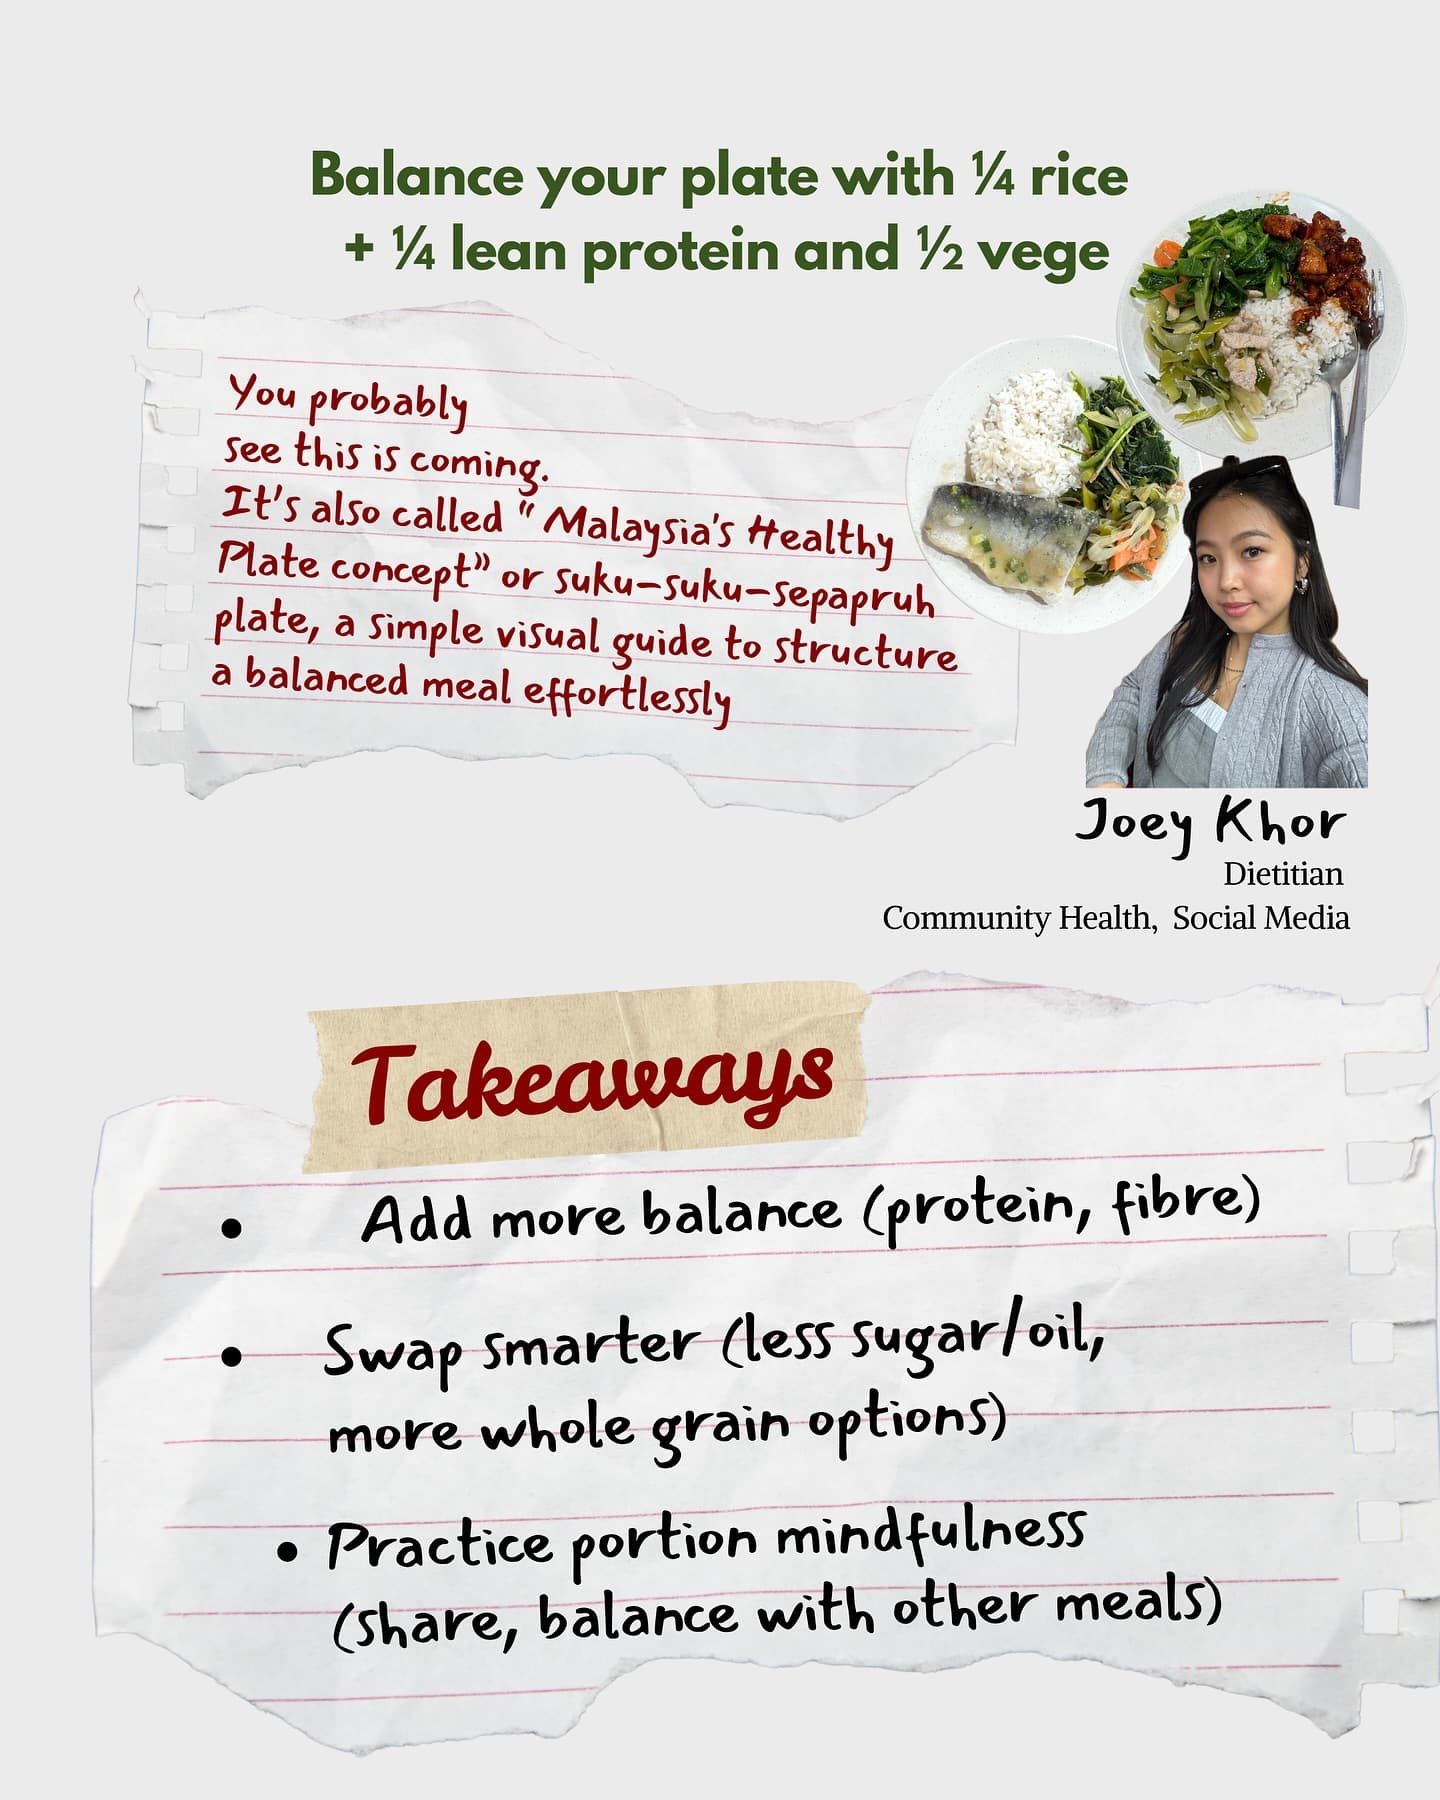 Balance your plate with ¼ rice
+ ¼ lean protein and ½ vege
You probably
see this is coming.
It's also called "Malaysia's Healthy
Plate concept" or suku-suku-sepapruh
plate, a simple visual guide to structure
a balanced meal effortlessly
Joey Khor
Dietitian
Community Health, Social Media
Takeaways
• Add more balance (protein, fibre)
• Swap smarter (less sugar/oil,
more whole grain options)
• Practice portion mindfulness
(share, balance with other meals)